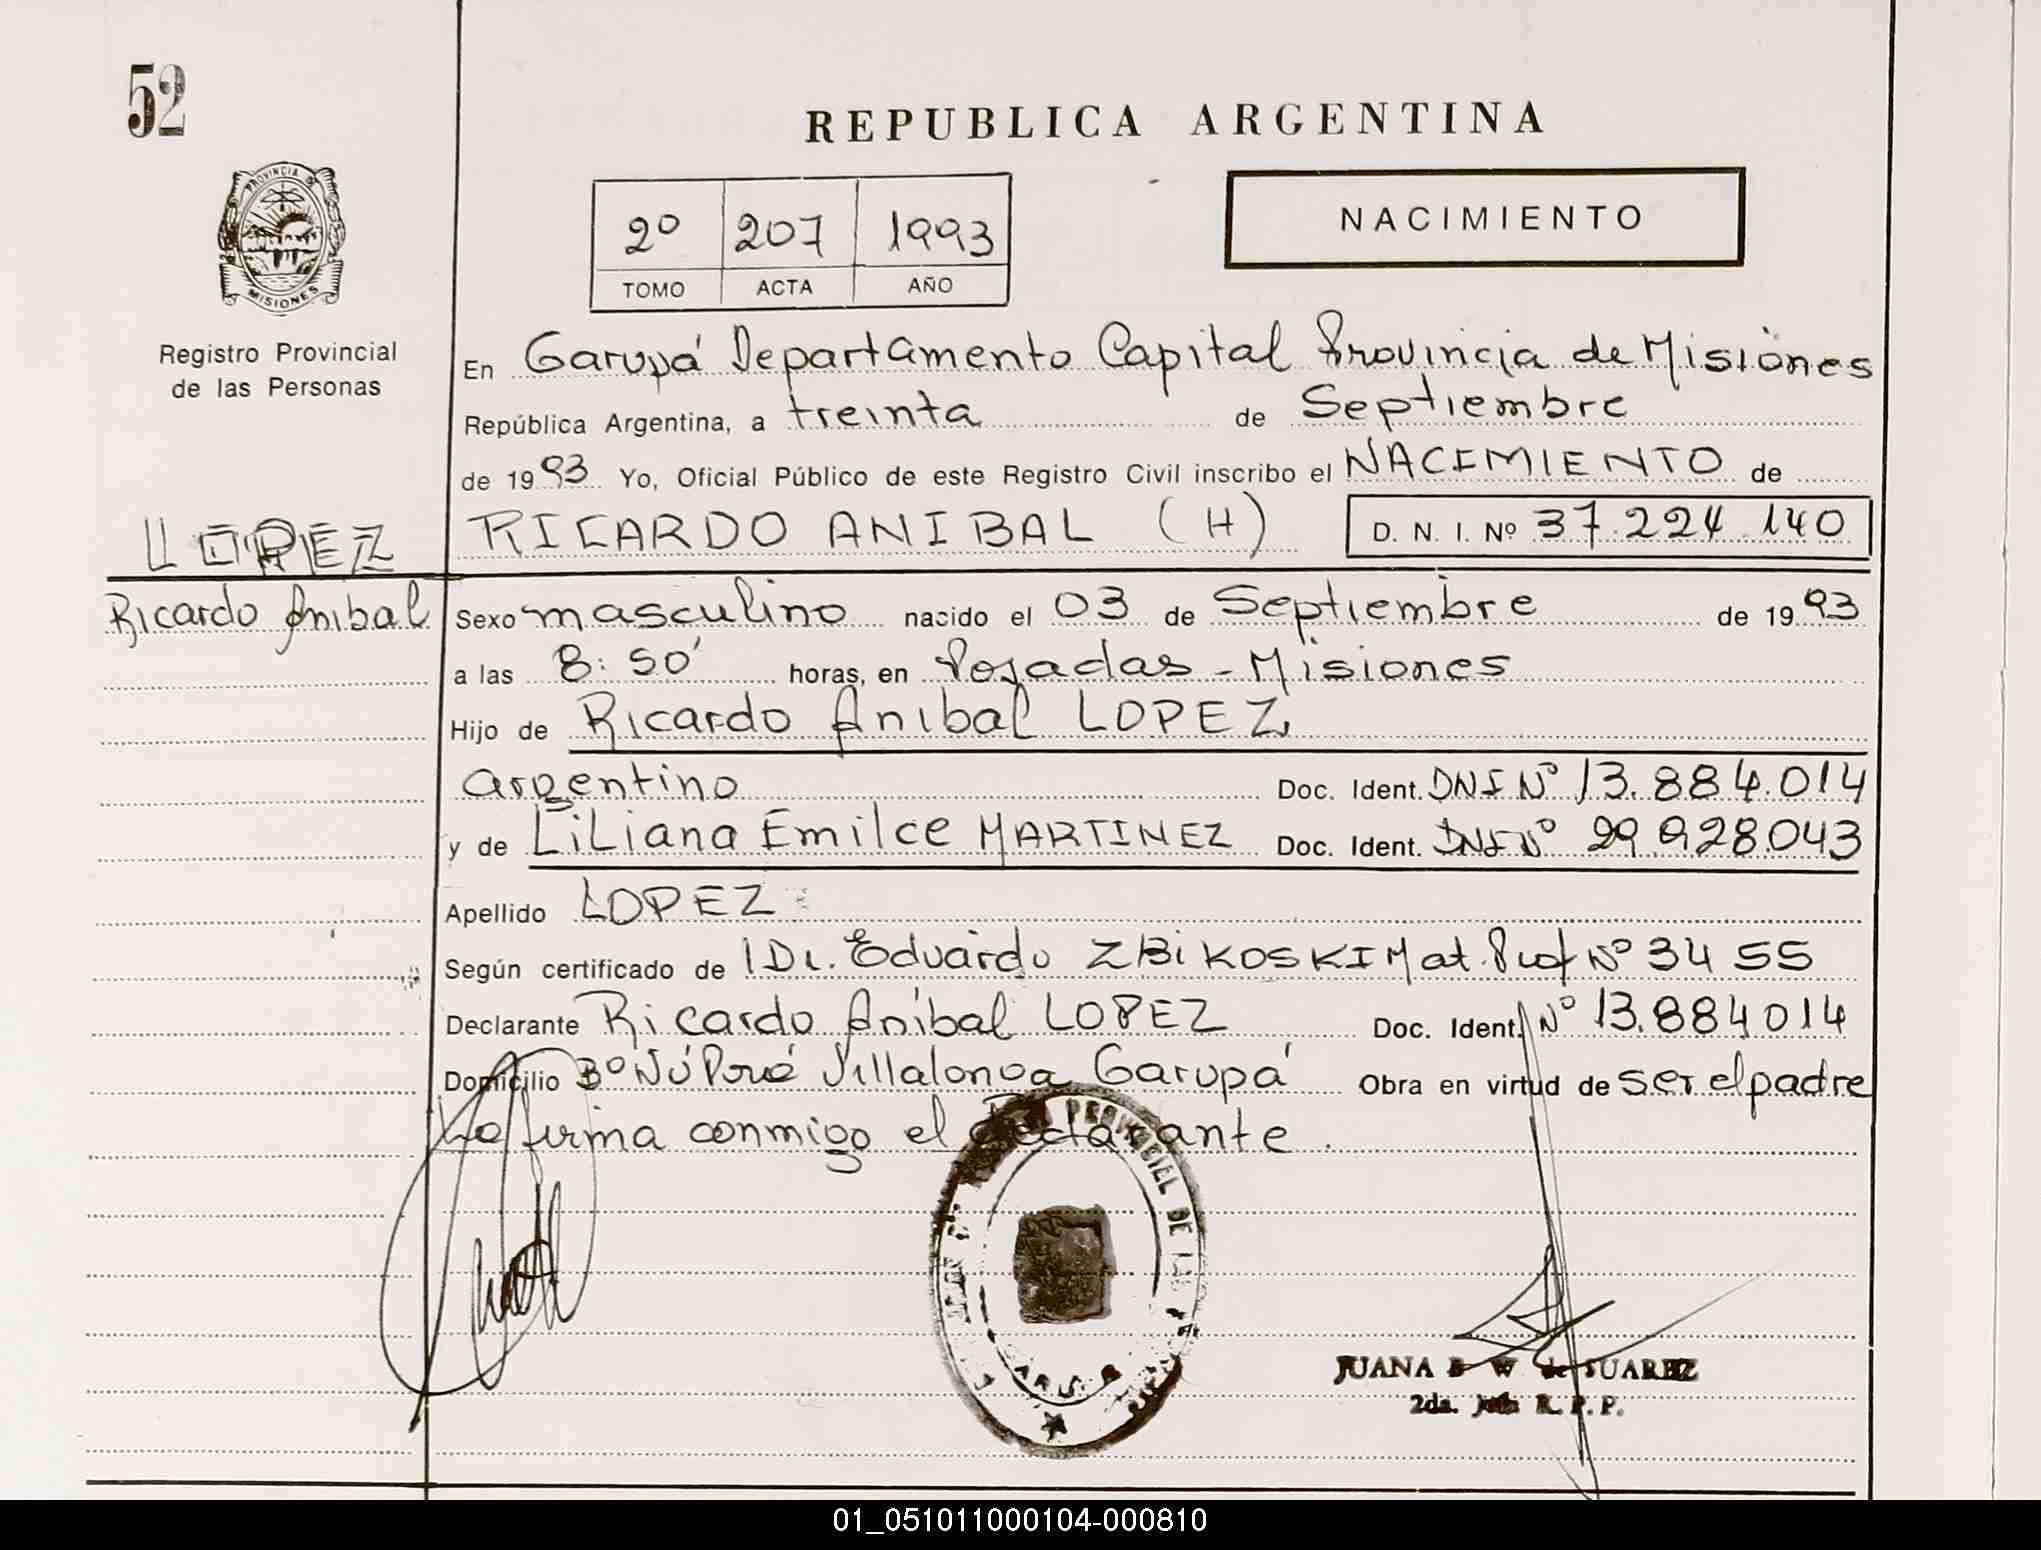 52
REPUBLICA ARGENTINA
PROVINCIA DE MISIONES
2º 207 1993
TOMO ACTA AÑO
NACIMIENTO
Registro Provincial
de las Personas
En Garupá Departamento Capital Provincia de Misiones
República Argentina, a treinta de Septiembre
de 1993 Yo, Oficial Público de este Registro Civil inscribo el NACIMIENTO de
LOPEZ
RICARDO ANIBAL (H) D. N. I. Nº 37.224.140
Ricardo Anibal
Sexo masculino nacido el 03 de Septiembre de 1993
a las 8:50' horas, en Posadas - Misiones
Hijo de Ricardo Anibal LOPEZ
argentino Doc. Ident. DNI Nº 13.884.014
y de Liliana Emilce MARTINEZ Doc. Ident. DNI Nº 29.928.043
Apellido LOPEZ
Según certificado de Dr. Eduardo ZBiKOSKI Mat. Prof Nº 3455
Declarante Ricardo Anibal LOPEZ Doc. Ident. Nº 13.884014
Domicilio Bº Ñú Porá Villalonga Garupá Obra en virtud de ser el padre
firma conmigo el declarante.
PROVINCIAL DE LAS
JUANA B W de SUAREZ
2da. Jefa R. P. P.
01_051011000104-000810